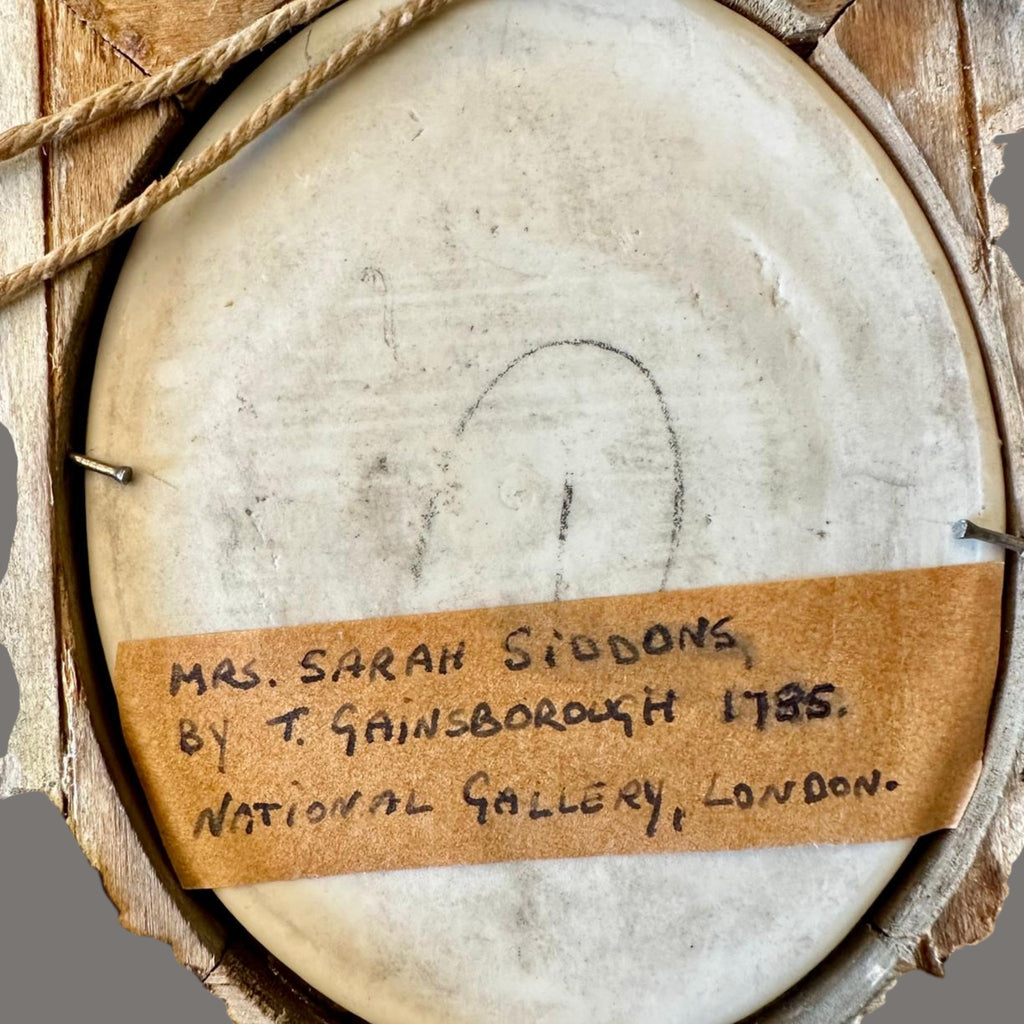 MRS. SARAH SIDDONS,
BY T. GAINSBOROUGH 1785.
NATIONAL GALLERY, LONDON.